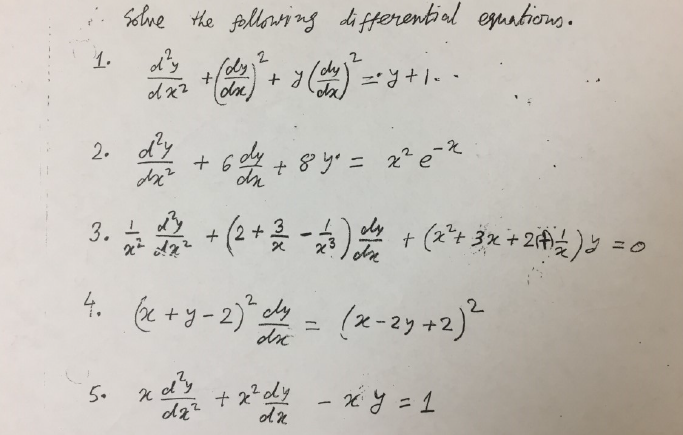 Solve the following differential equations.
1. d²y/dx² + (dy/dx)² + y(dy/dx)² = y + 1
2. d²y/dx² + 6 dy/dx + 8y = x² e^(-x)
3. 1/x² d²y/dx² + (2 + 3/x - 1/x³) dy/dx + (x² + 3x + 2 + 1/x) y = 0
4. (x + y - 2)² dy/dx = (x - 2y + 2)²
5. x d²y/dx² + x² dy/dx - x y = 1